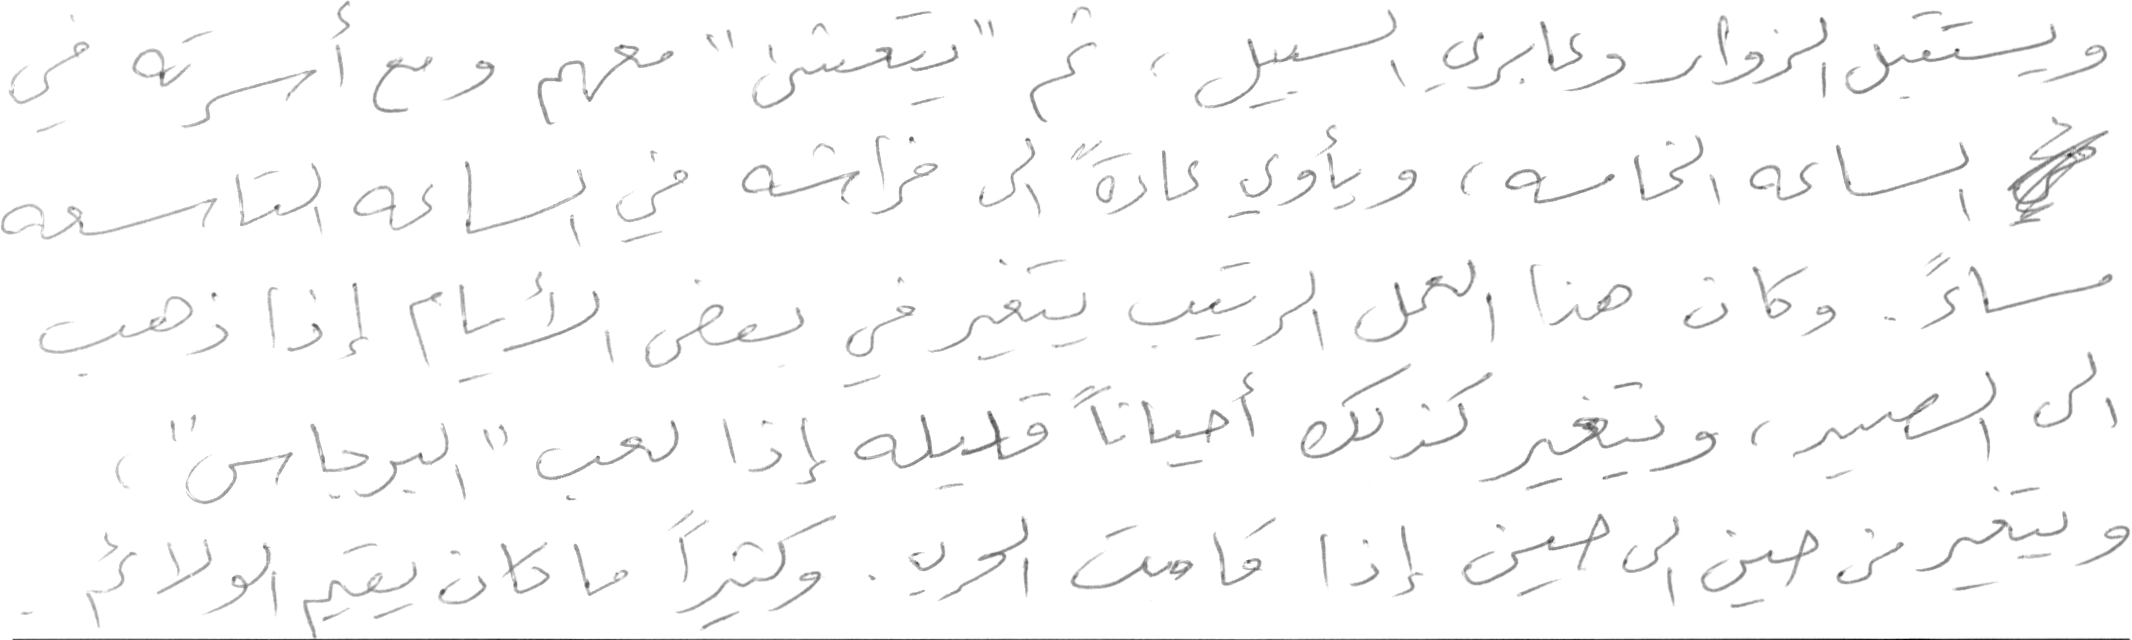 ويستقبل الزوار وعابري السبيل، ثم "يتعشى" معهم ومع أسرته في
الساعه الخامسه، ويأوي عادةً الى فراشه في الساعه التاسعه
مساءً. وكان هذا العمل الرتيب يتغير في بعض الأيام إذا ذهب
الى الصيد، ويتغير كذلك أحياناً قليله إذا لعب "البرجاس"،
ويتغير من حين الى حين إذا قامت الحرب. وكثيراً ما كان يقيم الولائم.